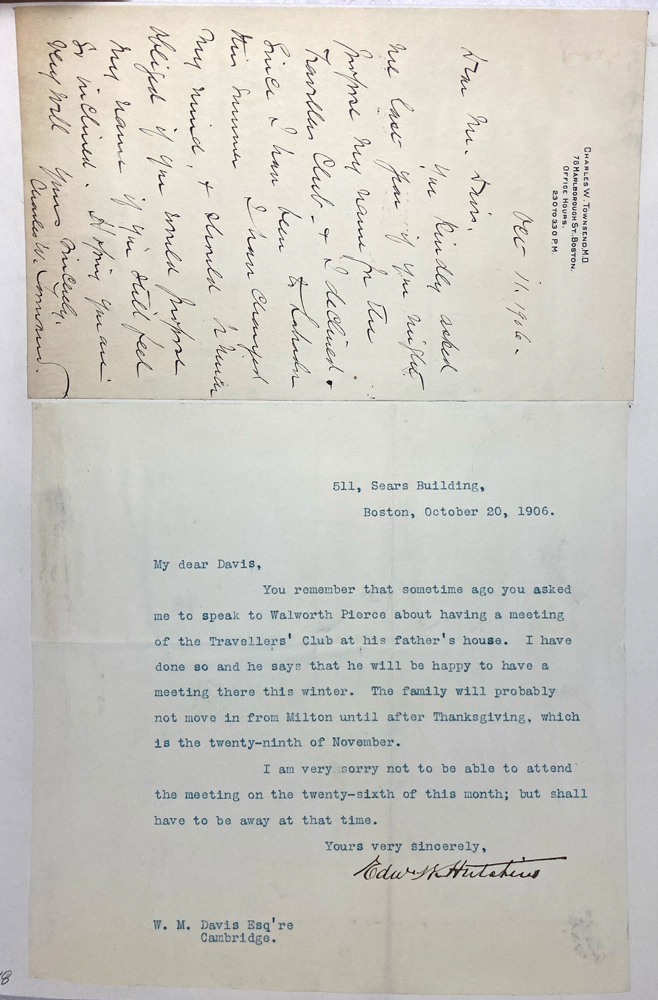 CHARLES W. TOWNSEND, M.D.
76 MARLBOROUGH ST. BOSTON.
OFFICE HOURS.
2.30 TO 3.30 P.M.
11. 1906.
Dear Mr. Davis.
You kindly asked
me last year if you might
propose my name for the
Travellers Club & I declined.
Since I have been to Labrador
this summer I have changed
my mind, & should be much
obliged if you would propose
my name if you still feel
so inclined. Hoping you are
very well Yours sincerely,
Charles W. Townsend.
511, Sears Building,
Boston, October 20, 1906.
My dear Davis,
You remember that sometime ago you asked
me to speak to Walworth Pierce about having a meeting
of the Travellers' Club at his father's house.  I have
done so and he says that he will be happy to have a
meeting there this winter.  The family will probably
not move in from Milton until after Thanksgiving, which
is the twenty-ninth of November.
I am very sorry not to be able to attend
the meeting on the twenty-sixth of this month; but shall
have to be away at that time.
Yours very sincerely,
Edw. W. Hutchins
W. M. Davis Esq're
Cambridge.
8